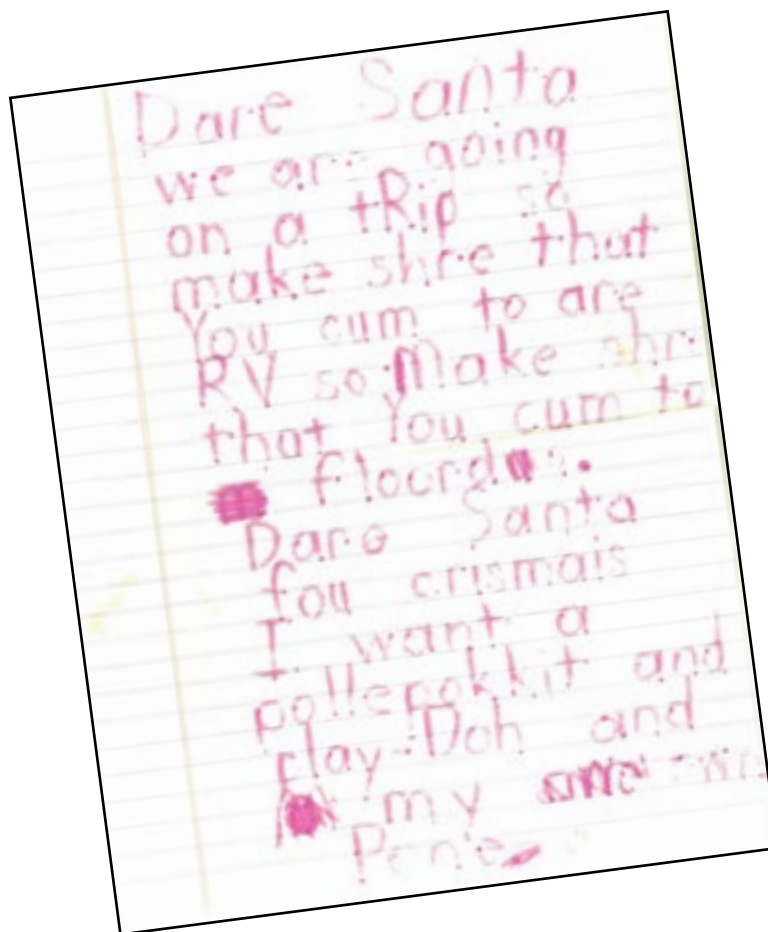 Dare Santa
we are going
on a tRip so
make shre that
You cum to are
RV so Make shr
that You cum to
floord
Dare Santa
fou crismais
I want a
pollepokkit and
play-Doh and
my